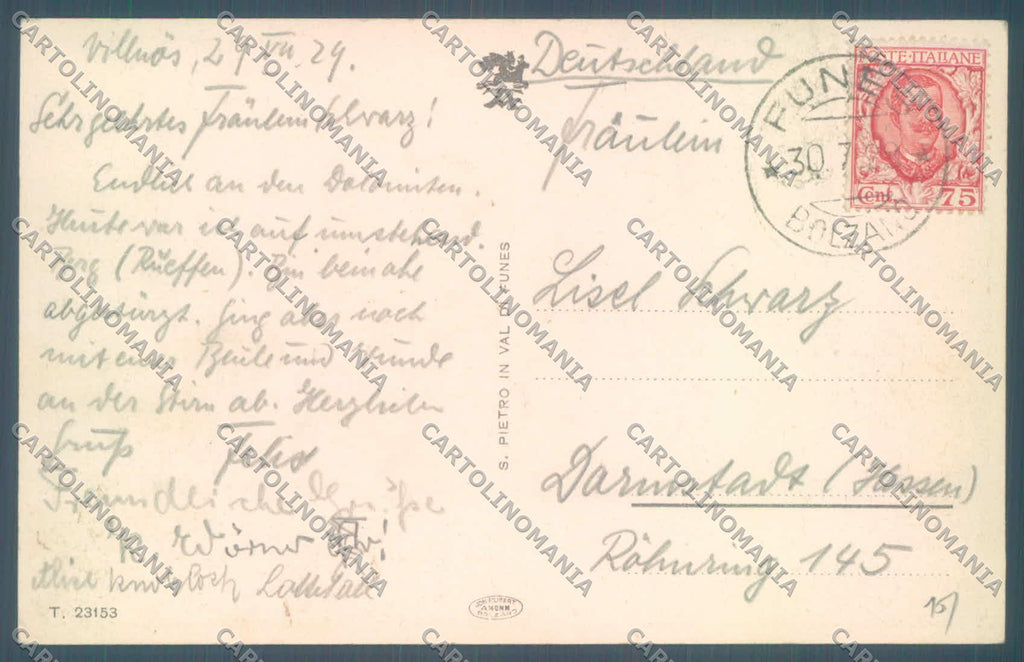 Villnös, 29. VII. 29.
Sehrgeehrtes Fräulein Schwarz!
Endlich an den Dolomiten.
Heute war ich auf umstehend.
Berg (Rueffen). Bin beinahe
abgestürzt. Ging aber noch
mit einer Beule und Wunde
an der Stirn ab. Herzlichen
Gruß
Freundliche Grüße
Wörner
T. 23153
S. PIETRO IN VAL DI FUNES
Deutschland
Fräulein
Lisel Schwarz
Darmstadt (Hessen)
Röhnring 145
POSTE·ITALIANE
Cent. 75
FUNES
30.7
BOLZANO
15/
CARTOLINOMANIA